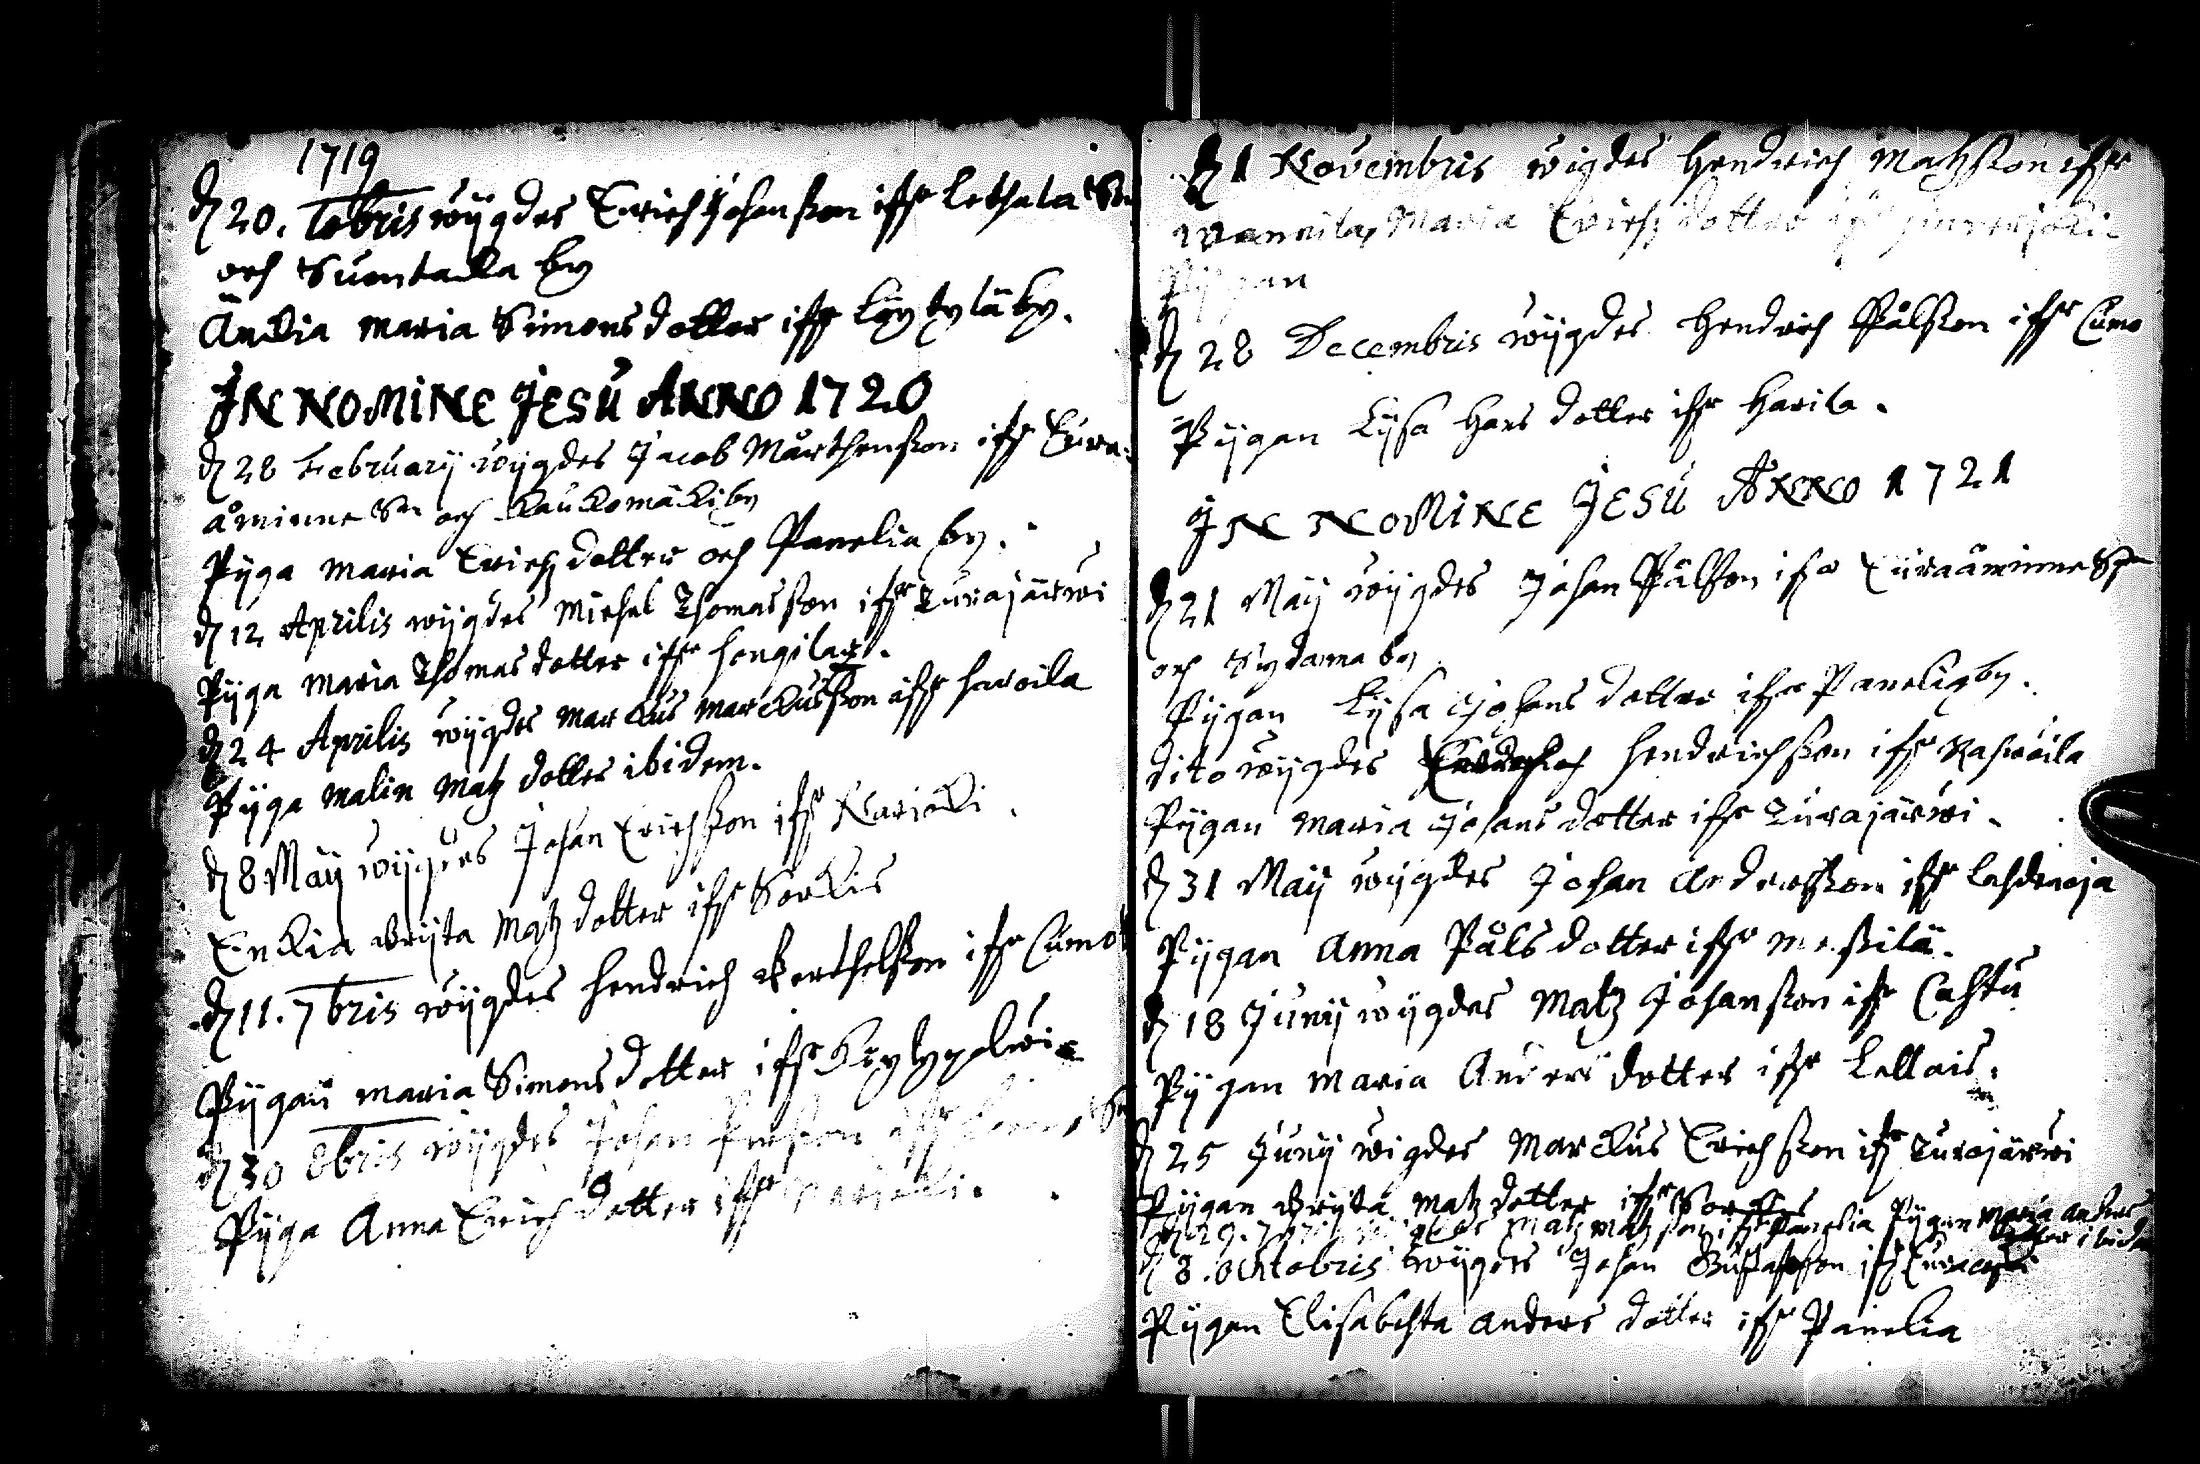 1719
d 20. Xbris wijgdes Erich Johansson ifr Lethala Sn
och Suontacka by
Änckia Maria Simons dotter ifr Löytylä by.
IN NOMINE JESU ANNO 1720
d 28 February wijgdes Jacob Mårthensson ifr Eura-
åminne Sn och Kauckomäcki by
Pijga Maria Erichz dotter och Panelia by.
d 12 Aprilis wijgdes Michel Thomasson ifr Turajärwi
Pijga Maria Thomas dotter ifr Hongilax.
d 24 Aprilis wijgdes Marckus Marckusson ifr Haroila
Pijga Malin Matz dotter ibidem.
d 8 Maij wijgdes Johan Erichsson ifr Narjacki.
Enckia Brijta Matz dotter ifr Sorckis
d 11. 7bris wijgdes Hendrich Berthelsson ifr Cumo
Pijgan Maria Simons dotter ifr Köylypolwi
d 30 8bris wijgdes Johan ifr Sn
Pijga Anna Erich dotter ifr Narjacki.
d 1 Novembris wigdes Hendrich Matzson ifr
Mannila, Maria Erichz dotter
Pijgan
d 28 Decembris wijgdes Hendrich Pålsson ifr Cumo
Pijgan Lijsa Hans dotter ifr Harila.
IN NOMINE JESU ANNO 1721
d 21 Maij wijgdes Johan Pålsson ifr Euraåminne Sn
och Sydänma by
Pijgan Lijsa Johans dotter ifr Panelia by.
dito wijgdes Hendrichsson ifr Rahwoila
Pijgan Maria Johans dotter ifr Turajärwi.
d 31 Maij wijgdes Johan Andersson ifr Lahdenoja
Pijgan Anna Påls dotter ifr Messilä.
d 18 Junij wijgdes Matz Johansson ifr Cahtu
Pijgan Maria Anders dotter ifr Lellais.
d 25 Junij wigdes Marckus Erichsson ifr Turajärwi
Pijgan Brijta Matz dotter ifr Sorckis
d 29. 7bris wijgdes Matz Matzson ifr Panelia Pijgan Maria Anders
dotter ibidem
d 8. Ochtobris wijgdes Johan Gustafsson ifr
Pijgan Elisabehta Anders dotter ifr Panelia